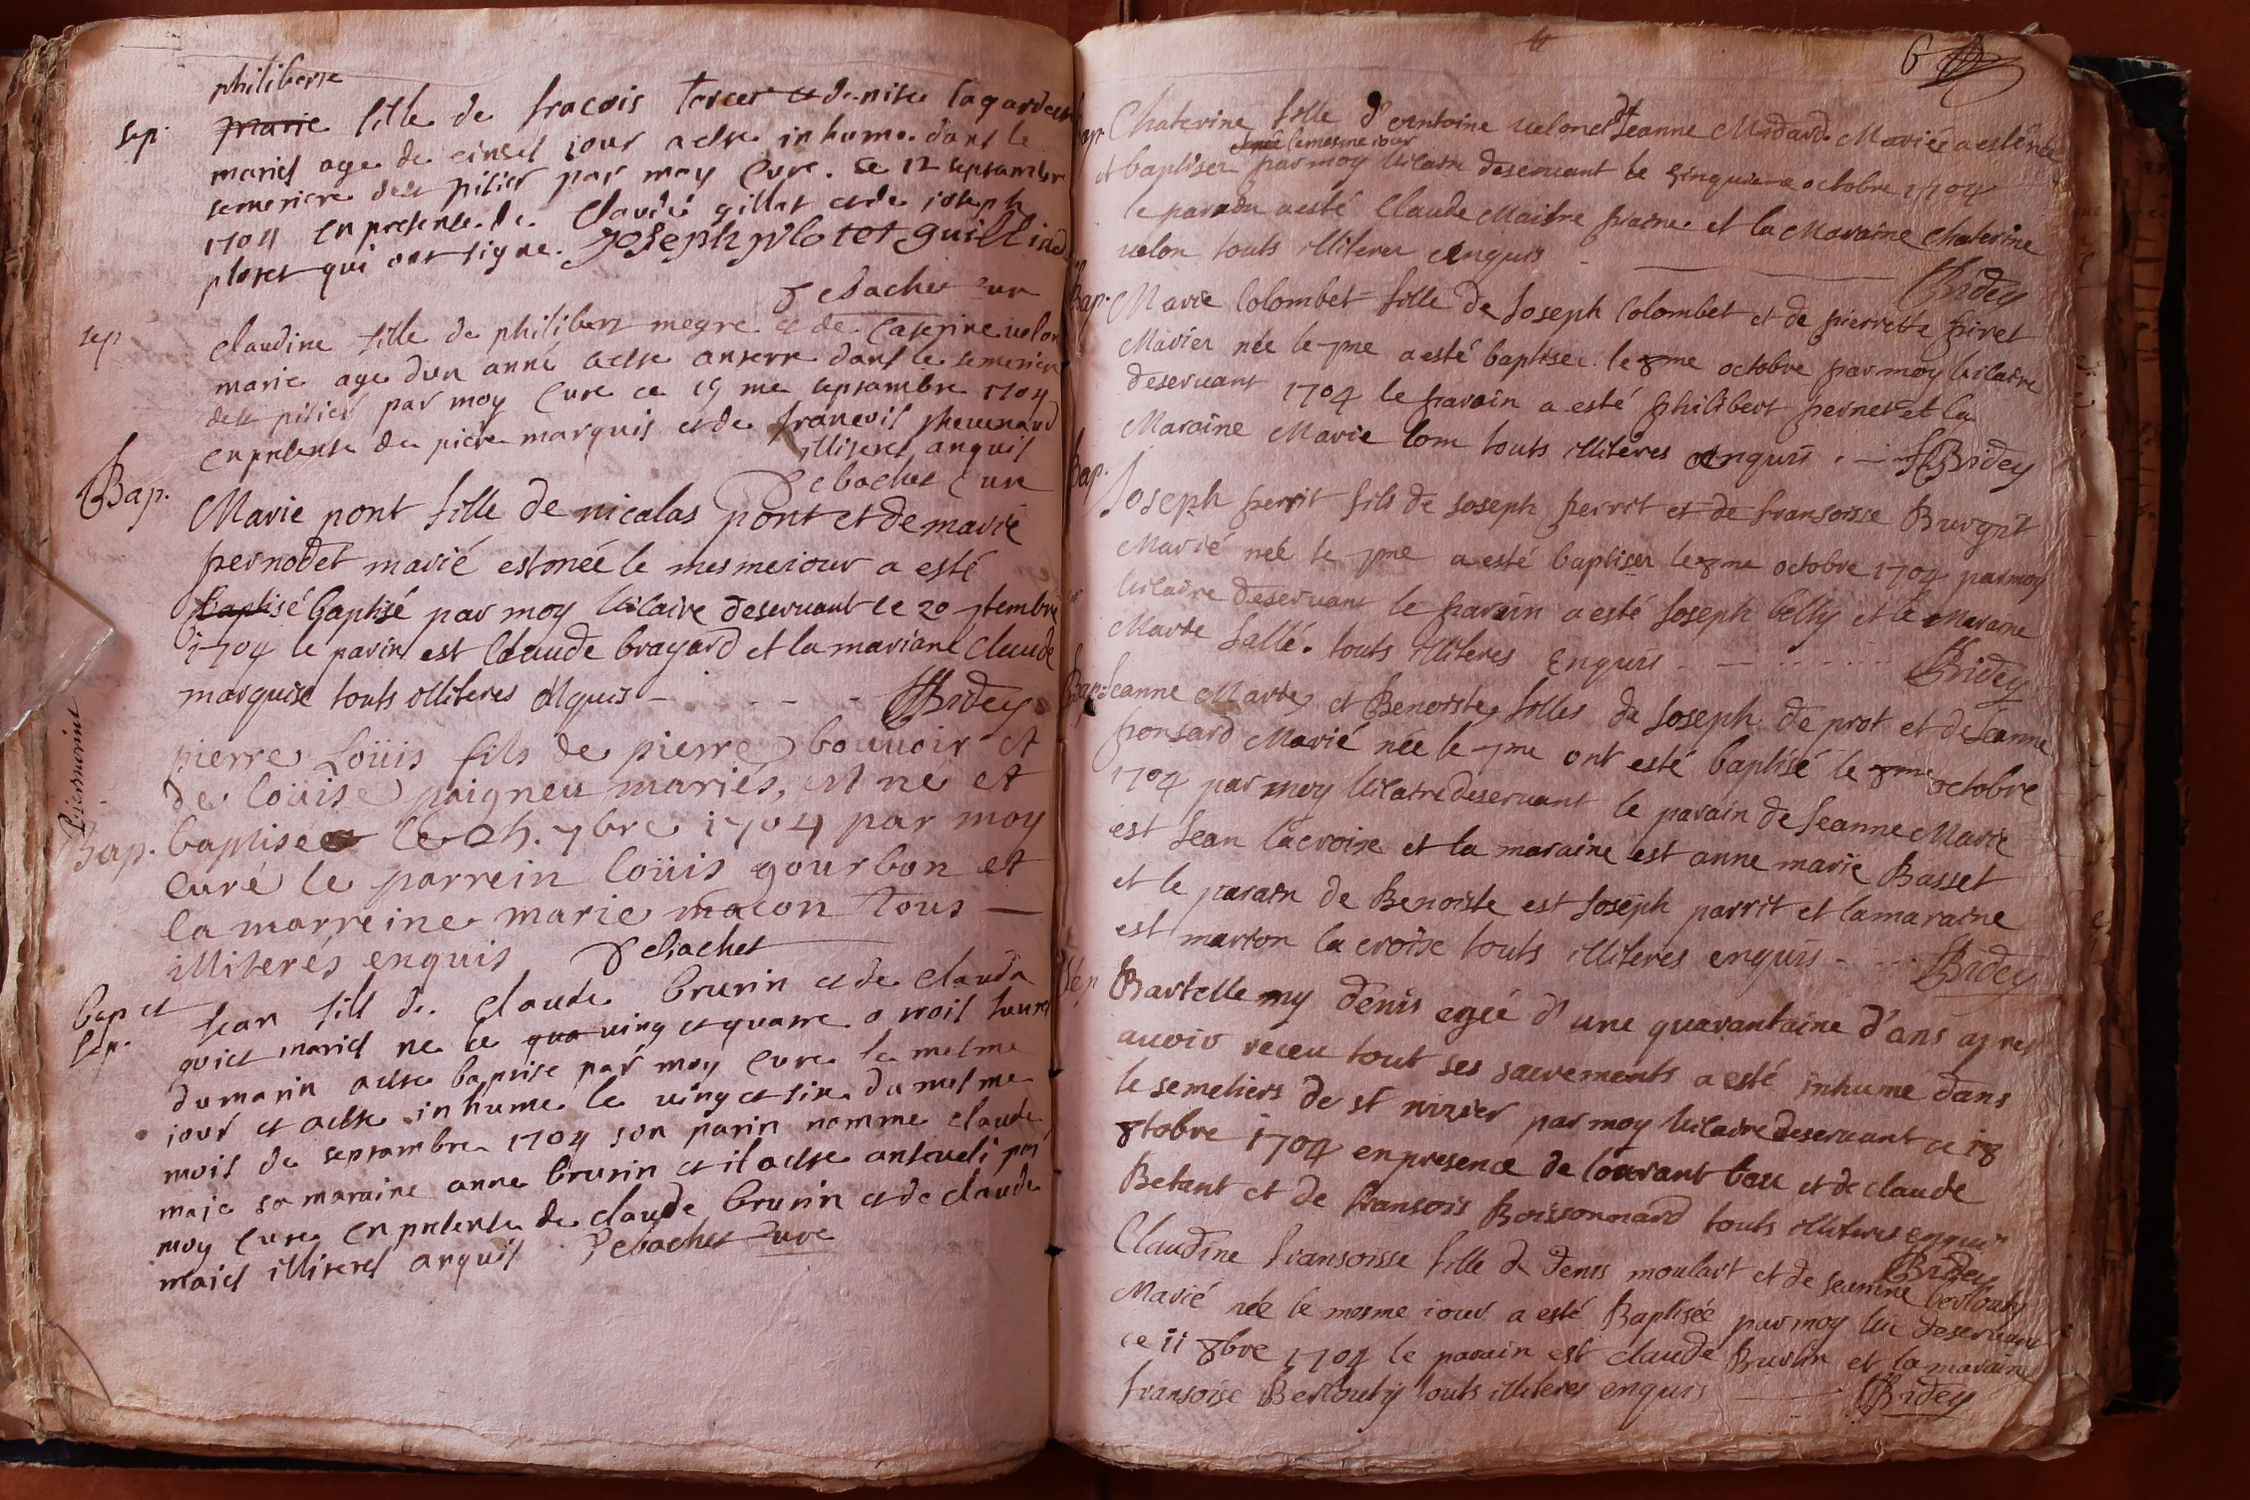 philiberte
sep. marie fille de fracois et denise lagarde
maries age de jour a este inhume dans le
semeniere dest pisier par moy Cure. ce 12 septambre
1704 en presense de Claude gillet et de joseph
plotet qui ont signe. Joseph plotet
debachet Cure
sep claudine fille de philibert megre et de Caterine velon
marie age dun anné aeste anterre dans le semenier
dest pisier par moy Cure ce 19 me septambre 1704
en presense de piere marquis et de francois thevenard
illiteres anquis
debachet Cure
Bap. Marie pont fille de nicalas pont et de marie
pernodet marié est née le mesme iour a esté
baptisé baptisé par moy vicaire deservant ce 20 7tembre
1704 le parin est Claude brayard et la mariane Claude
marquise touts illiteres anquis - HBridey
pierre Loüis fils de pierre bouvoir et
de loüise poigneu mariés, est né et
Bap. baptise le 7bre 1704 par moy
curé le parrein loüis gourbon et
la marreine marie macon tous
illiterés enquis debachet
bap et sep. Jean fill de Claude brurin et de Clauda
maries ne le qua ving et quatre a trois hures
du matin aeste baptise par moy Cure le mesme
jour et aeste inhume le ving et six du mesme
mois de septambre 1704 son parin nomme claude
maje sa maraine anne brurin et il aeste anseveli par
moy Cure en presense de claude brurin et de claude
maies illiteres anquis debachet Cure
6
bap. Chaterine fille d'Antoine velon et de Jeanne Midard Marié a esté née
et baptiser le mesme iour par moy vicaire deservant le sinquieme octobre 1704
le parain a esté Claude Maitre et la Maraine Chaterine
velon touts illiteres enquis HBridey
Bap. Marie Colombet fille de Joseph Colombet et de pierrette piret
Mariér née le 7me a esté baptisée le 8me octobre par moy vicaire
deservant 1704 le parain a esté philibert pernet et la
Maraine Marie lom touts illiteres enquis. - HBridey
bap. Joseph perrit fils de Joseph perrit et de fransoisse Burgnt
Marié née le 7me a esté baptiser le 8me octobre 1704 par moy
vicaire deservant le parain a esté Joseph belly et le Maraine
Marie Sallé. touts illiteres enquis HBridey
Bap. Jeanne Marie et Benoiste filles de Joseph de prot et de Jeanne
ponsard Marié née le 7me ont esté baptisé le 8me octobre
1704 par moy vicaire deservant le parain de Jeanne Marie
est Jean lacroise et la maraine est anne marie Basset
et le parain de Benoiste est Joseph parrit et la maraine
est marion la croise touts illiteres enquis - HBridey
Sep Bartellemy denis egeé d'une quarantaine d'ans apres
auvoir receu tout ses sacrements a esté inhume dans
le semetiers de st nizier par moy vicaire deservant ce 18
8tobre 1704 en presence de lourant beu et de claude
Betant et de fransois Boissonnard touts illiteres enquis
HBridey
Claudine fransoisse fille de denis moulart et de Jeanne berlouty
Marié née le mesme iour a esté Baptisée par moy vic deservant
ce 11 8bre 1704 le parain est claude Brurin et la maraine
fransoise Berlouty touts illiteres enquis HBridey
Bap.